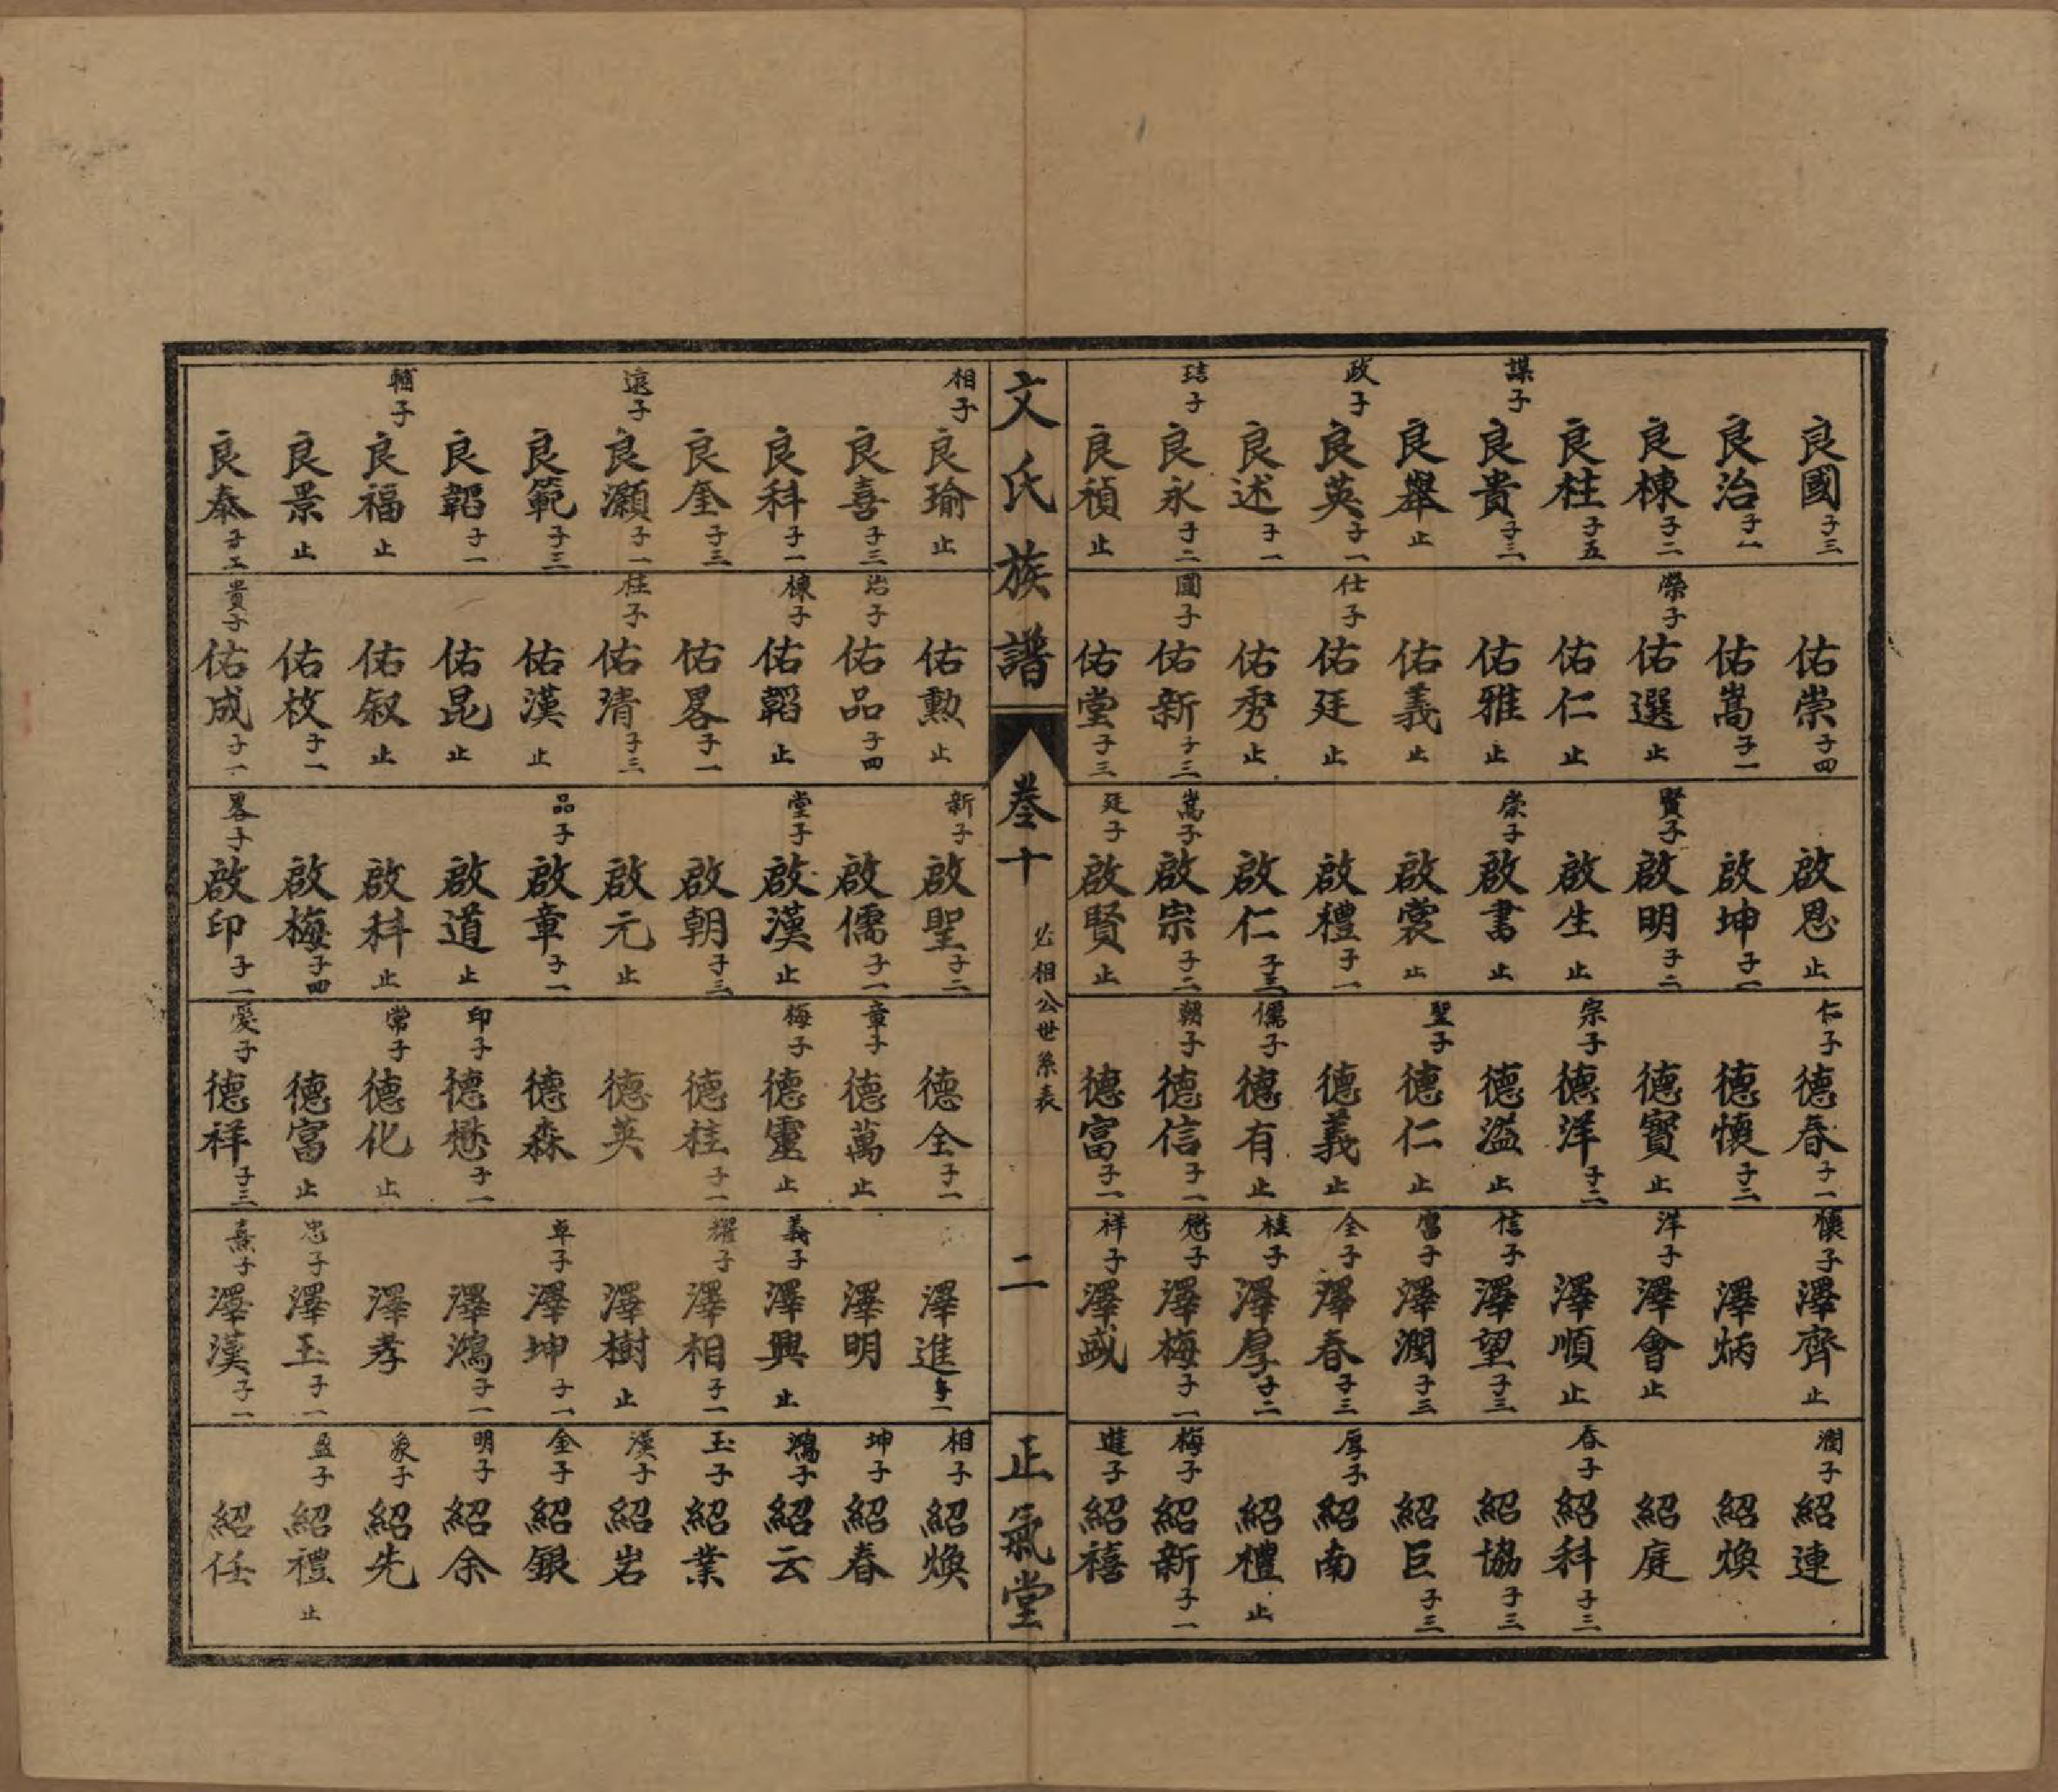 良國子三
良治子一
良棟子二
良柱子五
謀子良貴子三
良舉止
政子良英子一
良述子一
琂子良永子二
良禎止
佑崇子四
佑嵩子一
榮子佑選止
佑仁止
佑雅止
佑義止
仕子佑廷止
佑秀止
國子佑新子三
佑堂子三
啟恩止
啟坤子一
賢子啟明子二
啟生止
崇子啟書止
啟裳止
啟禮子一
啟仁子三
嵩子啟宗子二
廷子啟賢止
仁子德春子一
德懷子二
德寶止
宗子德洋子二
德溢止
聖子德仁止
德義止
儒子德有止
朝子德信子一
德富子一
懷子澤齊止
澤炳
洋子澤會止
澤順止
信子澤望子三
富子澤潤子三
全子澤春子三
桂子澤厚子二
懋子澤梅子一
祥子澤盛
潤子紹連
紹煥
紹庭
春子紹科子三
紹協子三
紹巨子三
厚子紹南
紹禮止
梅子紹新子一
進子紹禧
文氏族譜 卷十 必相公世系表 二 正氣堂
相子良瑜止
良喜子三
良科子一
良奎子三
遠子良灝子一
良範子三
良韜子一
輔子良福止
良景止
良泰子二
佑勲止
治子佑品子四
棟子佑韜止
佑畧子一
柱子佑清子三
佑漢止
佑昆止
佑叙止
佑枚子一
貴子佑成子一
新子啟聖子二
啟儒子一
堂子啟漢止
啟朝子三
啟元止
品子啟章子一
啟道止
啟科止
啟梅子四
畧子啟印子一
德全子一
章子德萬止
梅子德靈止
德柱子一
德英
德森
印子德懋子一
常子德化止
德富止
愛子德祥子三
澤進子一
澤明
義子澤興止
耀子澤相子一
澤樹止
卓子澤坤子一
澤鴻子一
澤孝
忠子澤玉子一
熹子澤漢子一
相子紹煥
坤子紹春
鴻子紹云
玉子紹業
漢子紹岩
金子紹銀
明子紹余
象子紹先
盈子紹禮止
紹任